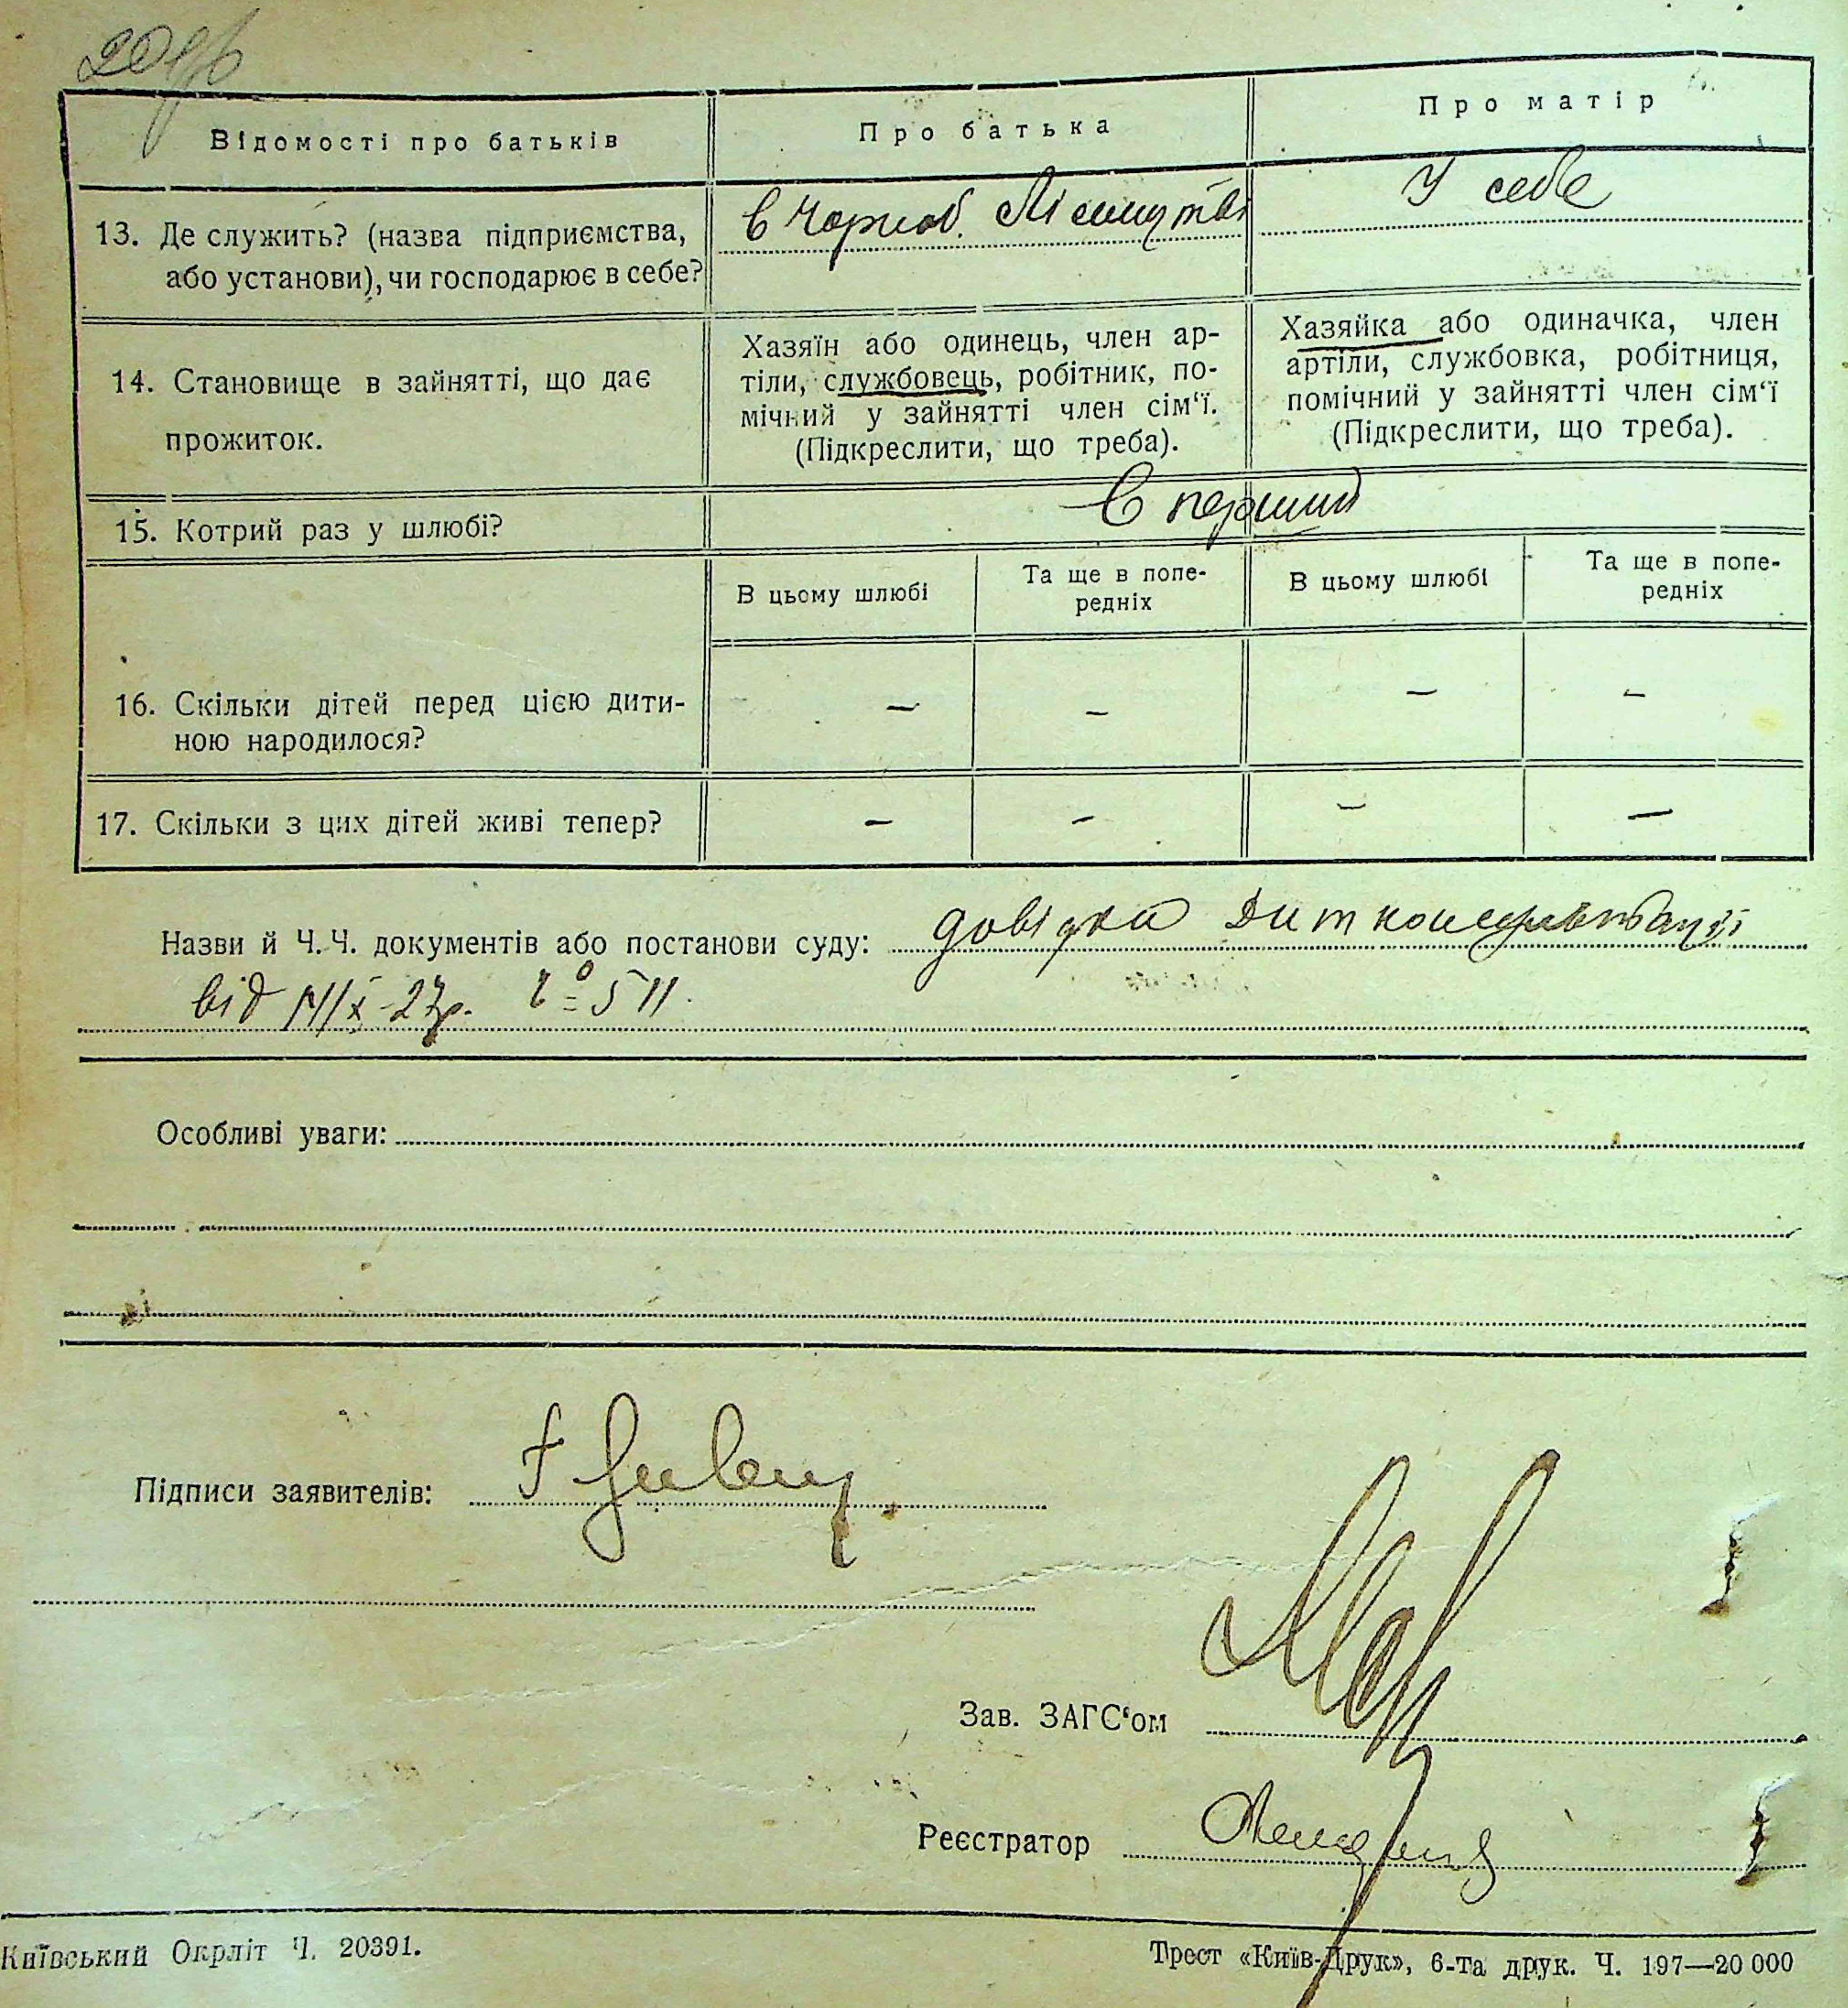 Відомості про батьків
Про батька
Про матір
13. Де служить? (назва підприємства,
або установи), чи господарює в себе?
в Чорноб. Лісництві
У себе
14. Становище в зайнятті, що дає
прожиток.
Хазяїн або одинець, член ар-
тіли, службовець, робітник, по-
мічний у зайнятті член сім‘ї.
(Підкреслити, що треба).
Хазяйка або одиначка, член
артіли, службовка, робітниця,
помічний у зайнятті член сім‘ї
(Підкреслити, що треба).
15. Котрий раз у шлюбі?
В перший
В цьому шлюбі
Та ще в попе-
редніх
В цьому шлюбі
Та ще в попе-
редніх
16. Скільки дітей перед цією дити-
ною народилося?
— — — —
17. Скільки з цих дітей живі тепер?
— — — —
Назви й Ч.Ч. документів або постанови суду: довідка Дит
від /X-27р. 511.
Особливі уваги:
Підписи заявителів:
Зав. ЗАГС‘ом
Реєстратор
Київський Окрліт Ч. 20391.
Трест «Київ-Друк», 6-та друк. Ч. 197—20 000